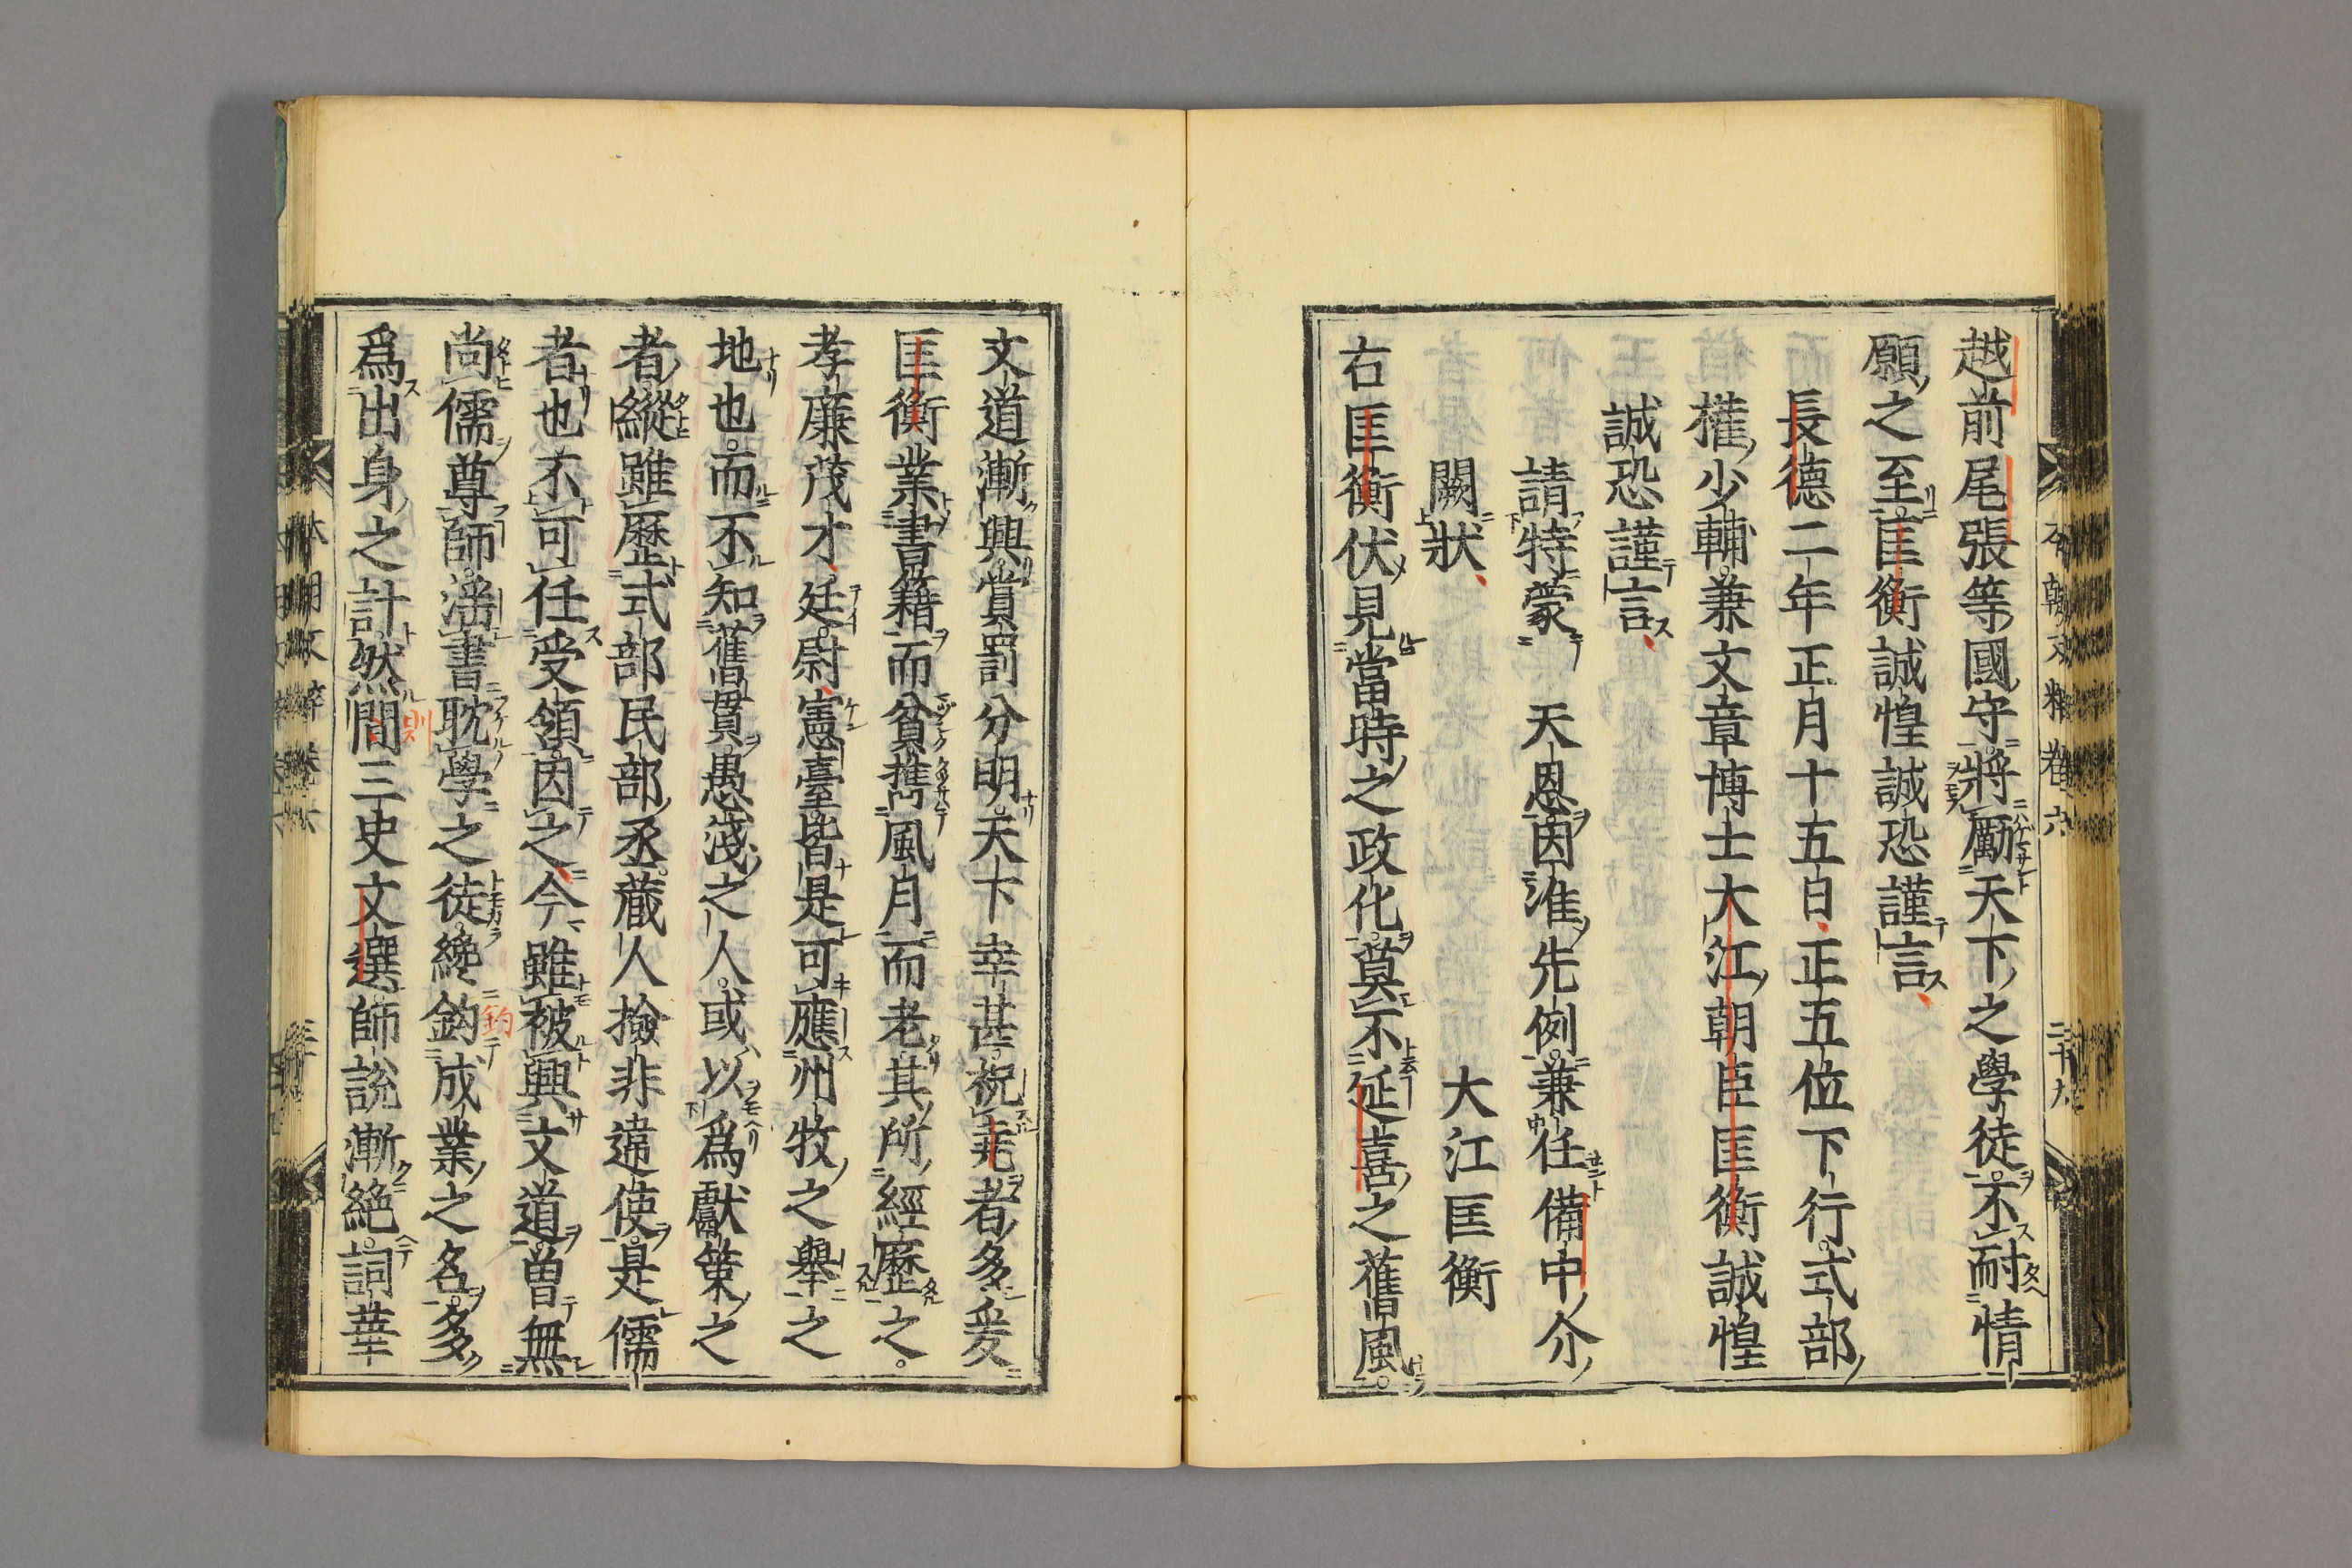 越前尾張等國守將勵天下之學徒不耐情
願之至匡衡誠惶誠恐謹言
長德二年正月十五日正五位下行式部
權少輔兼文章博士大江朝臣匡衡誠惶
誠恐謹言
請特蒙　天恩因准先例兼任備中介
闕狀
大江匡衡
右匡衡伏見當時之政化莫不延喜之舊風
文道漸興賞罰分明天下幸甚祝堯者多爰
匡衡業書籍而貧携風月而老其所經歷之
孝廉茂才廷尉憲臺皆是可應州牧之舉之
地也而不知舊貫愚淺之人或以爲獻策之
者縱雖歷式部民部丞藏人撿非違使是儒
者也不可任受領因之今雖被興文道曾無
尚儒尊師淫書耽學之徒纔鈎成業之名多
爲出身之計然間三史文選師說漸絕詞華
本朝文粹卷六
二十九